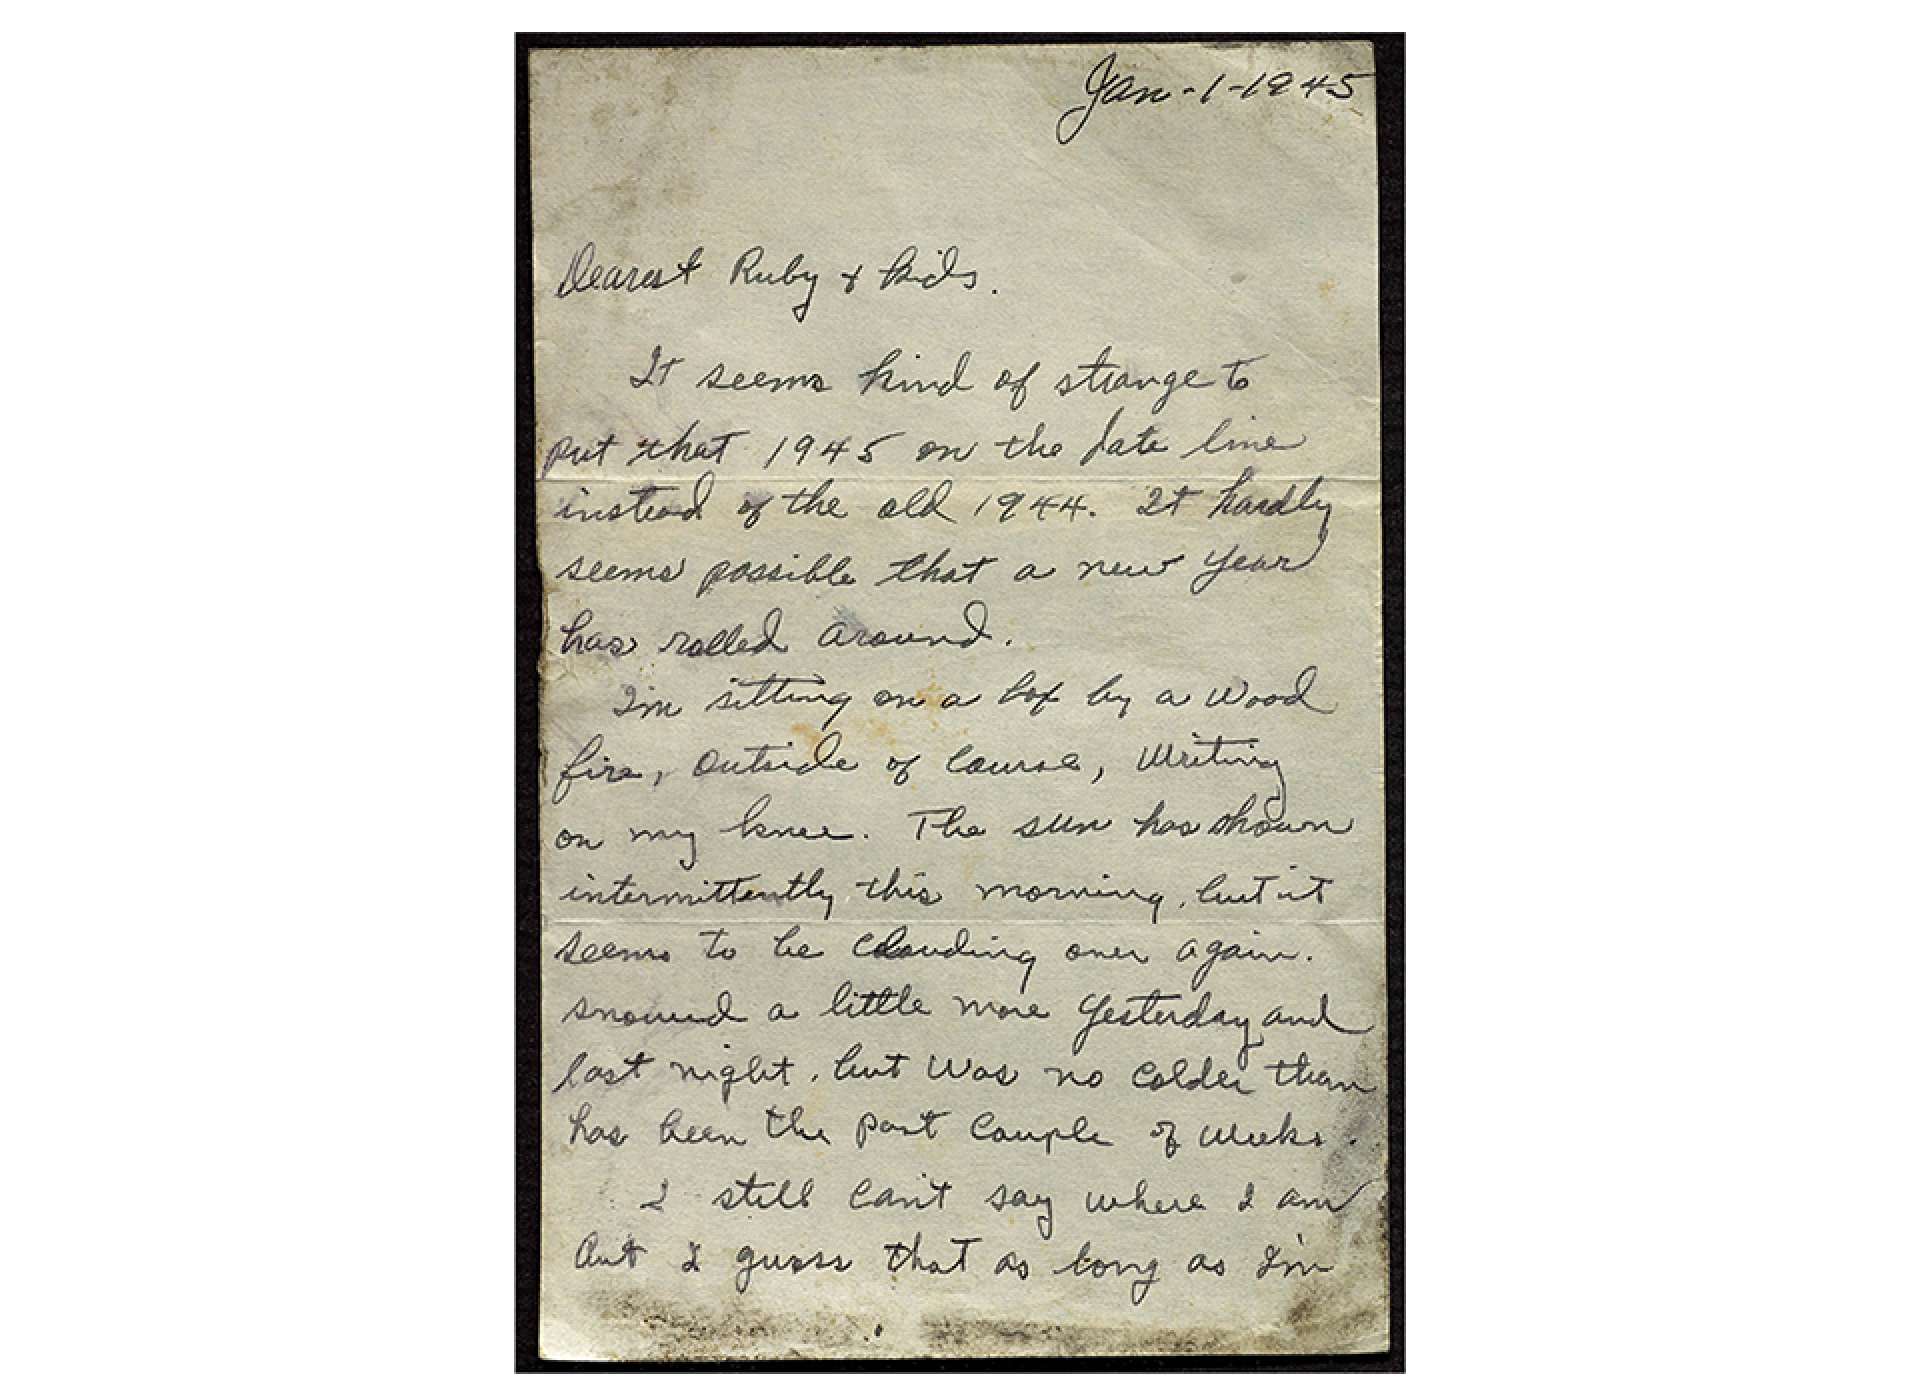 Jan-1-1945
Dearest Ruby & kids.
It seems kind of strange to
put that 1945 on the date line
instead of the old 1944. It hardly
seems possible that a new year
has rolled around.
I'm sitting on a box by a wood
fire, outside of course, writing
on my knee. The sun has shown
intermittently this morning, but it
seems to be clouding over again.
snowed a little more yesterday and
last night, but was no colder than
has been the past couple of weeks.
I still can't say where I am
But I guess that as long as I'm